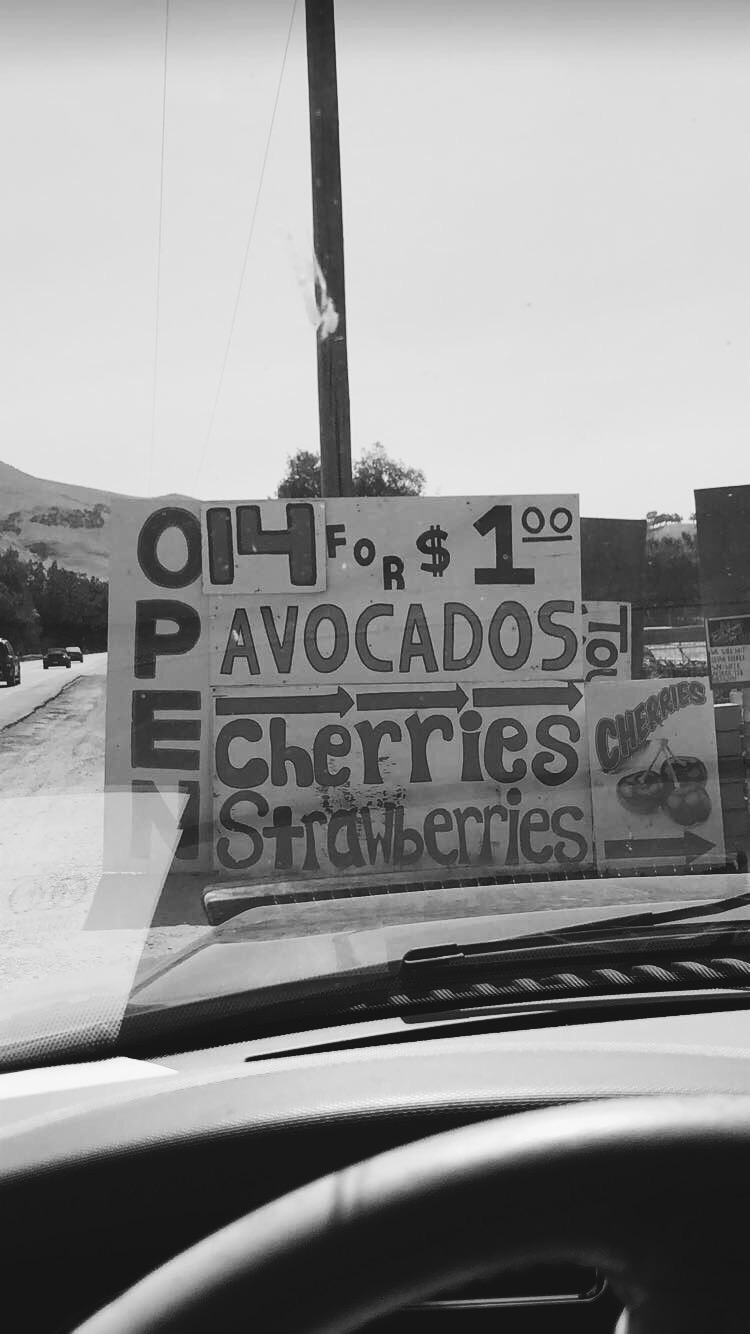 OPEN
14 FOR $1.00
AVOCADOS
Cherries
Strawberries
CHERRIES